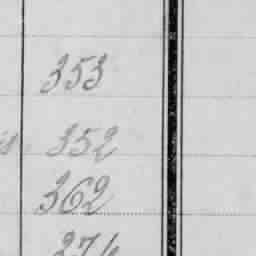 353
352
362